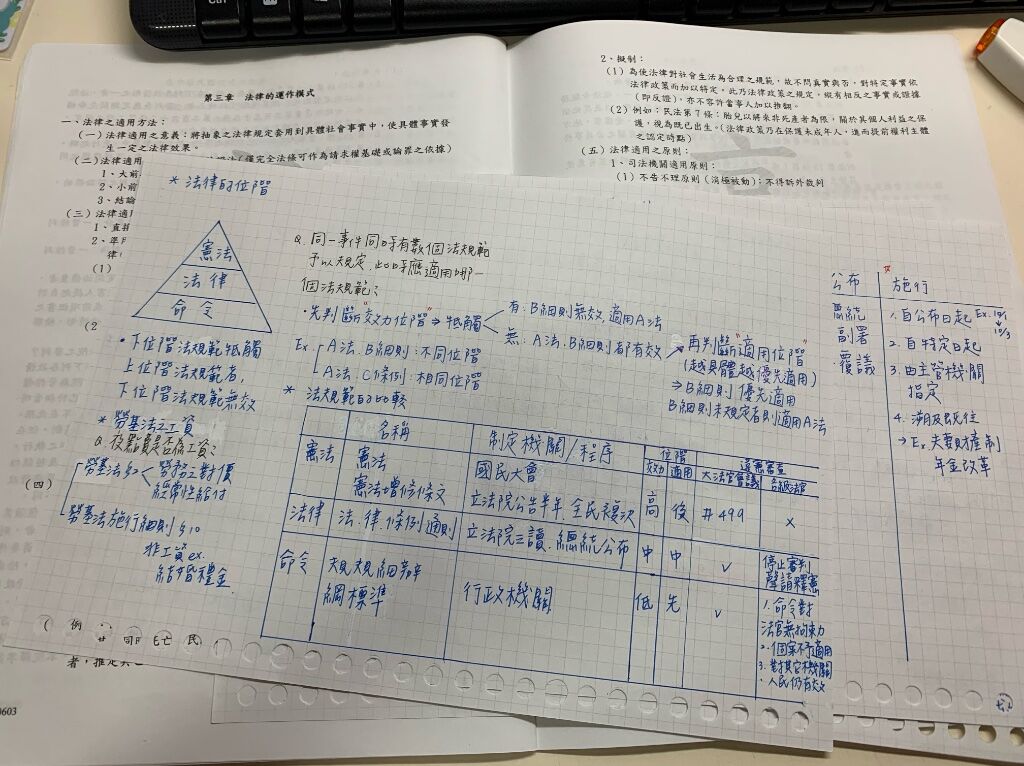 Ctrl
第三章 法律的運作模式
一、法律之適用方法：
（一）法律適用之意義：將抽象之法律規定套用到具體社會事實中，使具體事實發
生一定之法律效果。
（僅完全法條可作為請求權基礎或論罪之依據）
（二）法律適用
1、大前
2、小前
3、結論
（三）法律適
1、直
2、準
律
（1）
（2
（四）
2、擬制：
（1）為使法律對社會生活為合理之規範，故不問真實與否，對特定事實依
法律政策而加以特定，此乃法律政策之規定，縱有相反之事實或證據
（即反證），亦不容許當事人加以推翻。
（2）例如：民法第7條：胎兒以將來非死產者為限，關於其個人利益之保
護，視為既已出生。（法律政策乃在保護未成年人，進而提前權利主體
之認定時點）
（五）法律適用之原則：
1、司法機關適用原則：
（1）不告不理原則（消極被動）；不得訴外裁判
* 法律的位階
憲法
法律
命令
・下位階法規範牴觸
上位階法規範者，
下位階法規範無效
Q. 同一事件同時有數個法規範
予以規定，此時應適用哪一
個法規範？
・先判斷"效力位階"⇒牴觸
有：B細則無效，適用A法
無：A法、B細則都有效
Ex. A法、B細則：不同位階
A法、C條例：相同位階
再判斷"適用位階"
(越具體越優先適用)
⇒B細則優先適用
B細則未規定者則適用A法
* 勞基法之工資
勞基法§2 勞務之對價
經常性給付
勞基法施行細則§10
非工資 ex.
結婚禮金
* 法規範的比較
名稱 制定機關/程序 位階 違憲審查
效力 適用 大法官會議 各級法官
憲法 憲法 國民大會
憲法增修條文 立法院公告半年、全民複決 高 後 #499 x
法律 法、律、條例、通則 立法院三讀、總統公布 中 中 ✓ 停止審判
聲請釋憲
命令 規規細辦 行政機關 低 先 ✓ 1. 命令對
綱標準 法官無拘束力
2. 個案不予適用
3. 對其它機關
、人民仍有效
公布 施行
總統 1. 自公布日起 Ex. 10/1
10/3
副署 2. 自特定日起
覆議 3. 由主管機關
指定
4. 溯及既往
→ Ex. 夫妻財產制
年金改革
例
民
0603